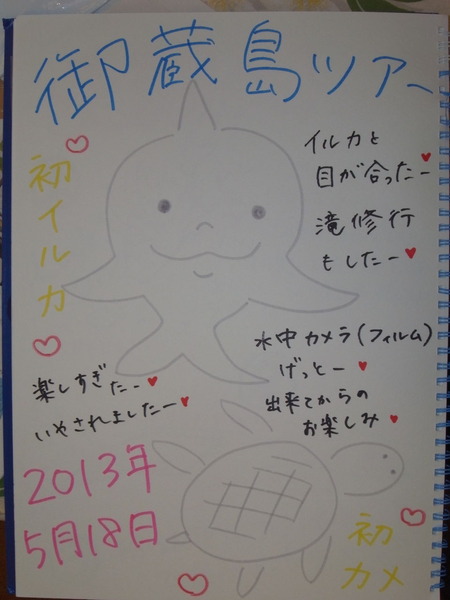 御蔵島ツアー
初イルカ
イルカと
目が合ったー
滝修行
もしたー
水中カメラ(フィルム)
げっとー
出来てからの
お楽しみ
楽しすぎたー
いやされましたー
2013年
5月18日
初
カメ